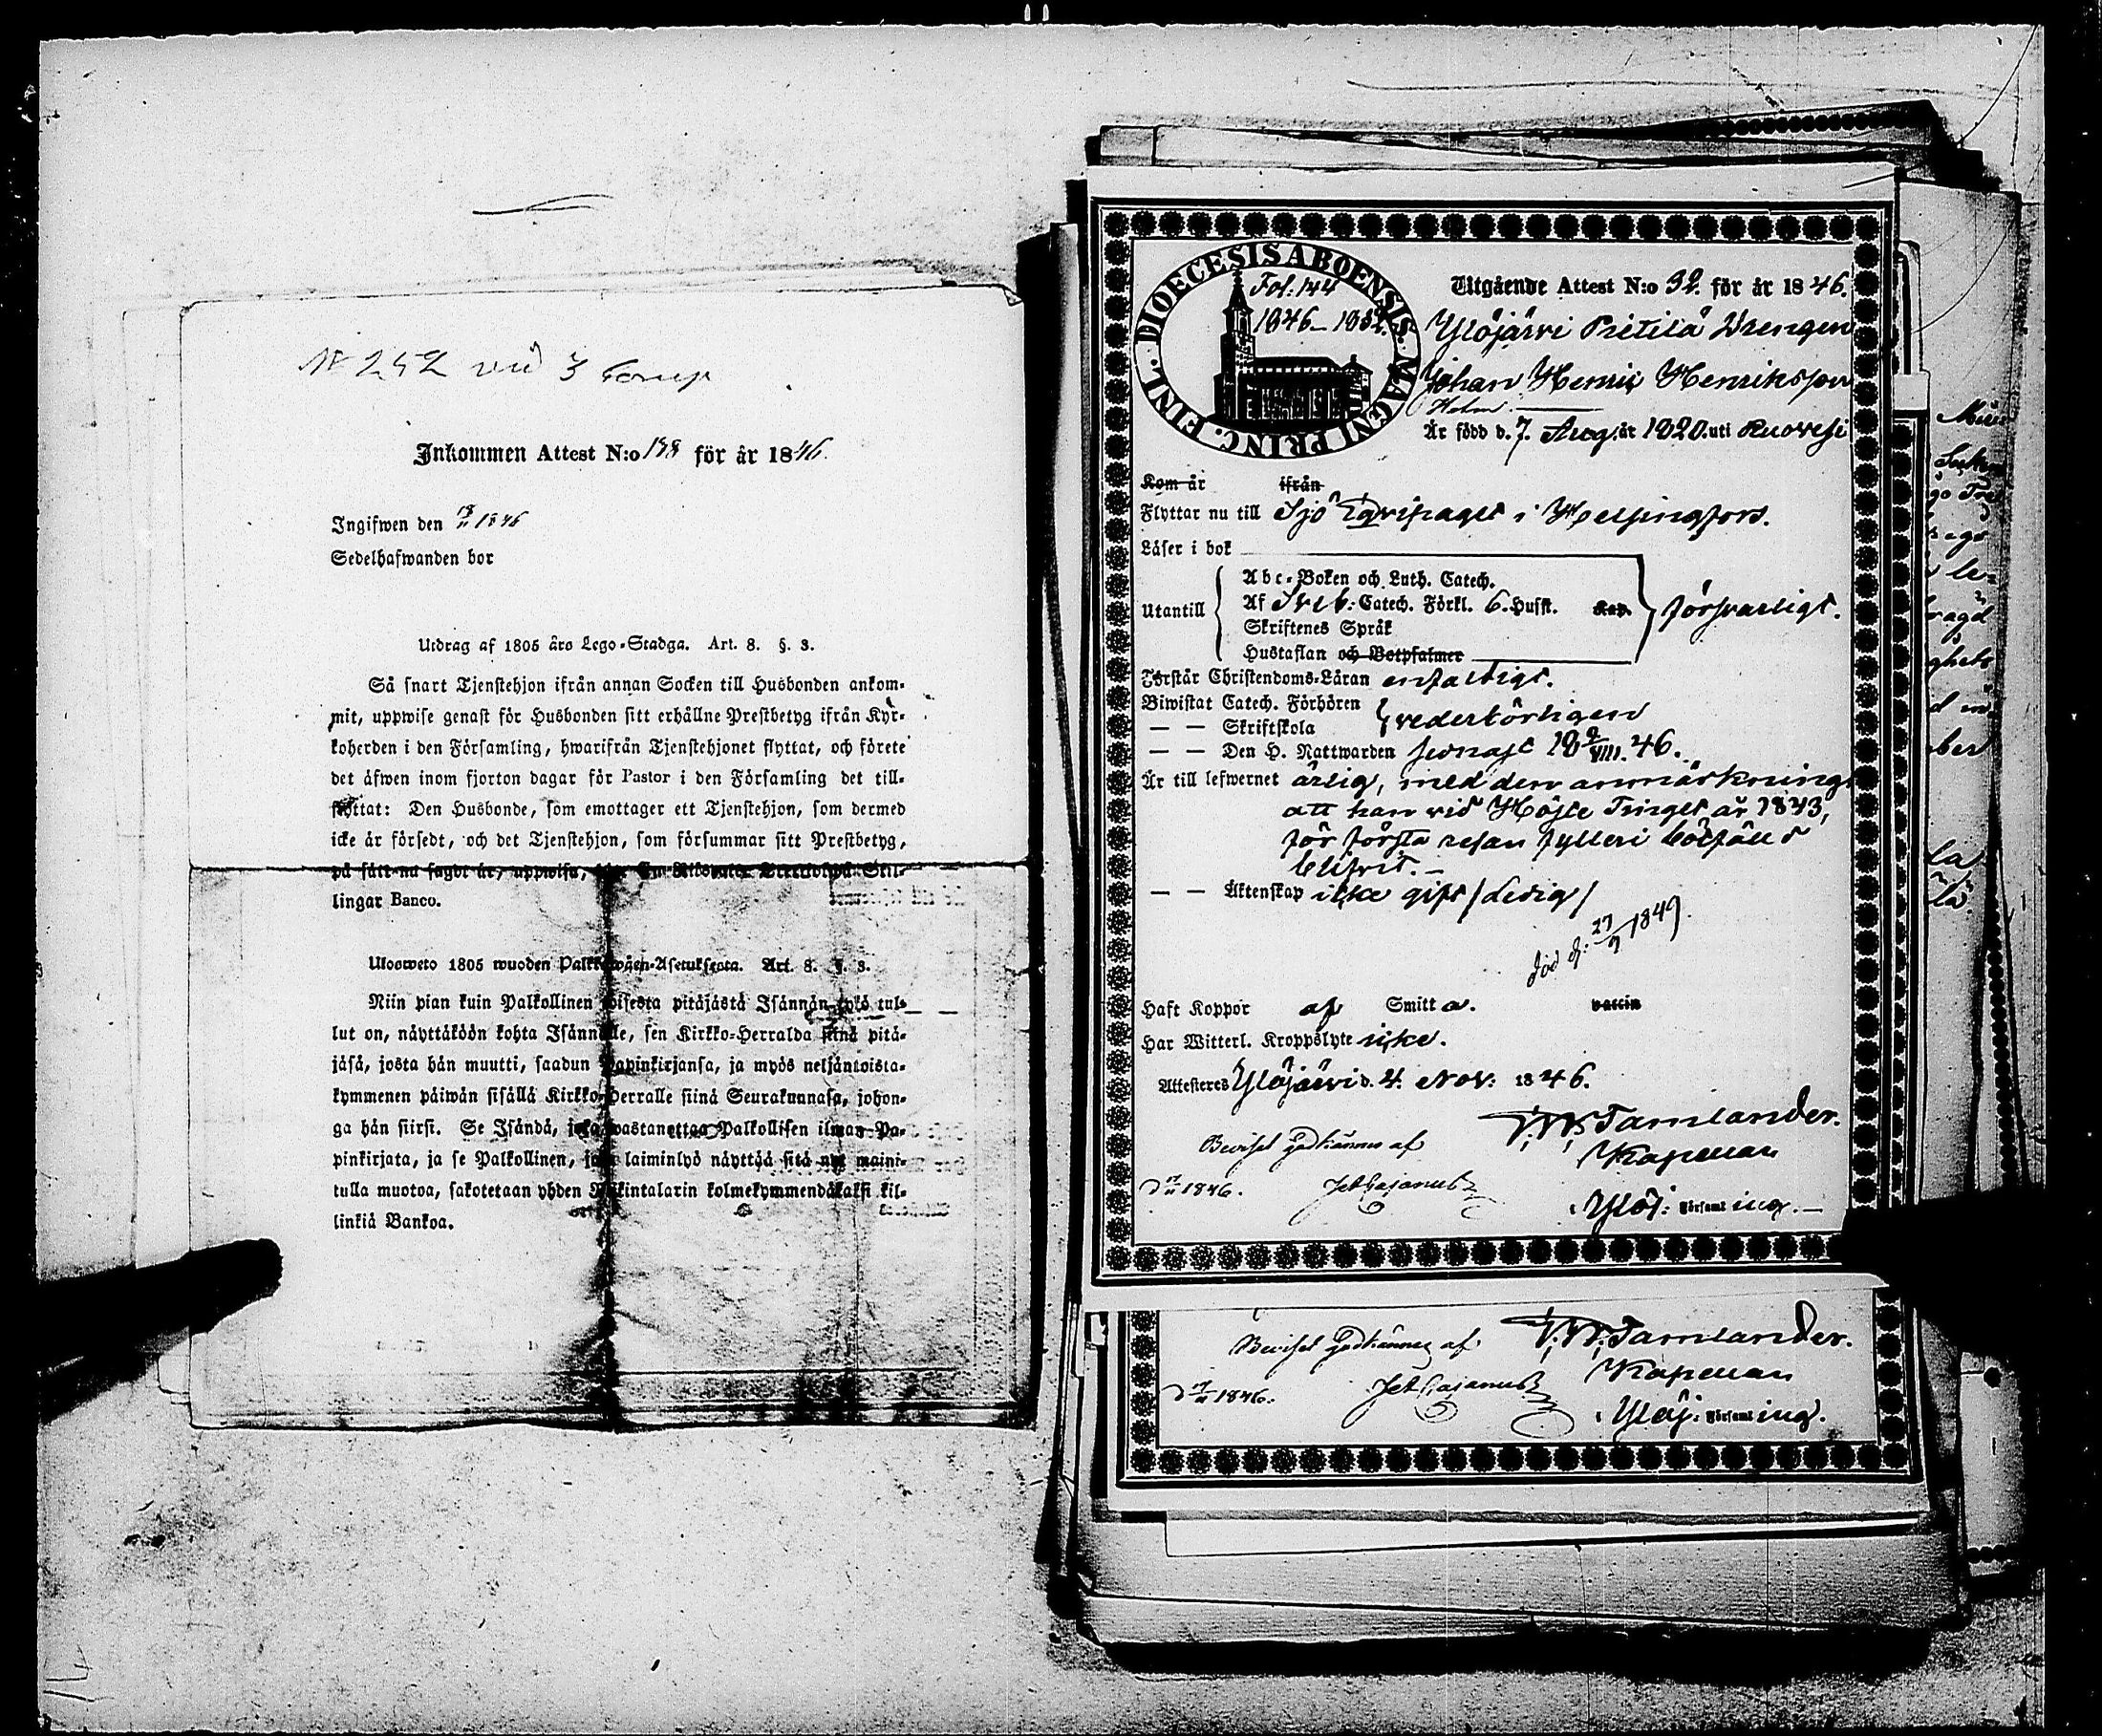 N 252 vid 3 Comp
Inkommen Attest N:o 138 för år 1846.
Ingifwen den 13/11 1846
Sedelhafwanden bor
Utdrag af 1805 års Lego-Stadga. Art. 8. §. 3.
Så snart Tjenstehjon ifrån annan Socken till Husbonden ankom-
mit, uppwise genast för Husbonden sitt erhållne Prestbetyg ifrån Kyr-
koherden i den Församling, hwarifrån Tjenstehjonet flyttat, och förete
det äfwen inom fjorton dagar för Pastor i den Församling det till-
flyttat: Den Husbonde, som emottager ett Tjenstehjon, som dermed
icke är försedt, och det Tjenstehjon, som försummar sitt Prestbetyg,
på sätt nu sagdt är, uppwisa,
lingar Banco.
Ulosweto 1805 wuoden Palkkawäen-Asetuksesta. Art. 8. §. 3.
Niin pian kuin Palkollinen toisesta pitäjästä Isännän tykö tul-
lut on, näyttäköön kohta Isännälle, sen Kirkko-Herralda siinä pitä-
jäsä, josta hän muutti, saadun Papinkirjansa, ja myös neljäntoista-
kymmenen päiwän sisällä Kirkko-Herralle siinä Seurakunnasa, johon-
ga hän siirsi. Se Isändä, joka wastanottaa Palkollisen ilman Pa-
pinkirjata, ja se Palkollinen, joka laiminlyö näyttää sitä nyt maini-
tulla muotoa, sakotetaan yhden Riikintalarin kolmekymmendäkaksi kil-
linkiä Bankoa.
DIOECESIS ABOENSIS. MAGNI PRINC. FINL.
Fol: 144
1846-1852.
Utgående Attest N:o 32. för år 1846.
Ylöjärvi Pietilä Drengen
Johan Henric Henriksson
Holm
Är född d. 7. Aug. år 1820. uti Ruovesi
Kom år ifrån
Flyttar nu till Sjö Equipaget i Helsingfors.
Läser i bok
Utantill
Abc-Boken och Luth. Catech.
Af Sveb: Catech. Förkl. 6. Husst. Kap. försvarligt.
Skriftenes Språk
Hustaflan och Botpsalmer
Förstår Christendoms-Läran enfaldigt.
Biwistat Catech. Förhören
— — Skriftskola vederbörligen
— — Den H. Nattwarden senast 18 9/VIII. 46.
Är till lefwernet ärlig, med den anmärkning,
att han vid Höste Tinget år 1843,
för första resan fylleri bötfälld
blifvit. —
— — Äktenskap icke gift / Ledig /
död d: 27/9 1849.
Haft Koppor af Smitta. vaccin
Har Witterl. Kroppslyte icke.
Attesteres Ylöjärvi d. 4. Nov: 1846.
W. Tamlander.
Beviset godkännes af
Kapellan
1846. Joh Cajanus
i Ylöj: Församling. —
W. Tamlander.
Beviset godkännes af
Kapellan
1846. Joh Cajanus
i Ylöj: Församling.